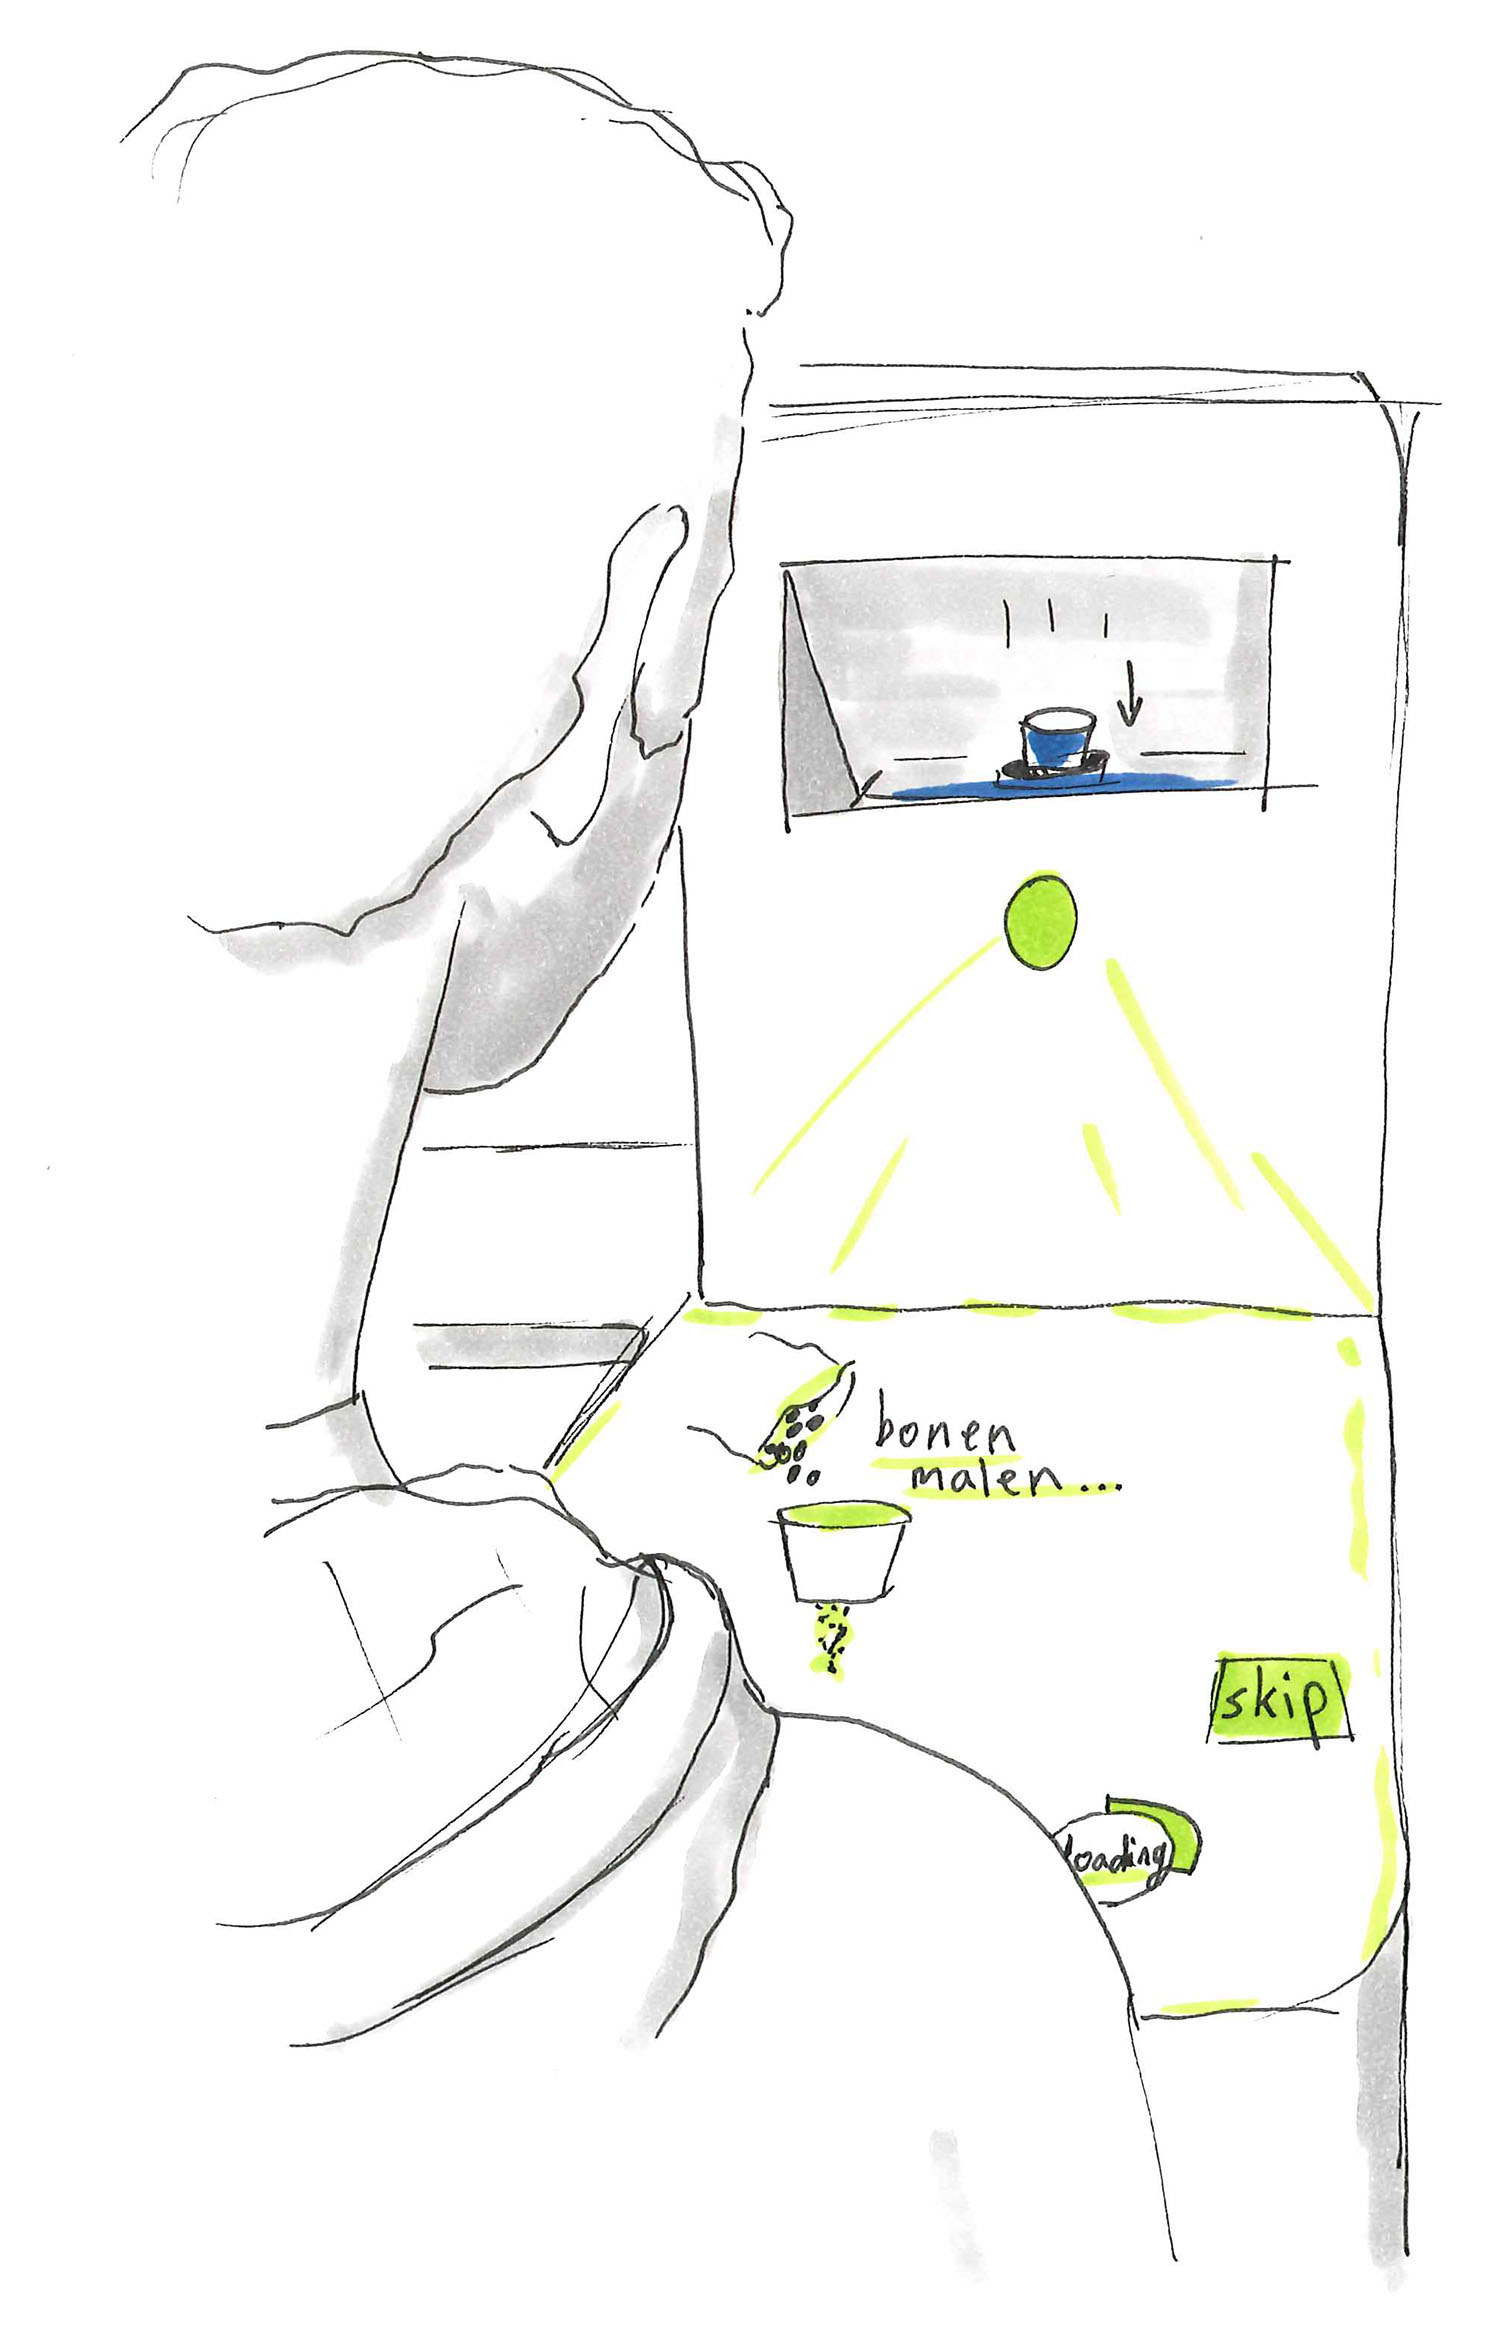 bonen
malen...
skip
loading